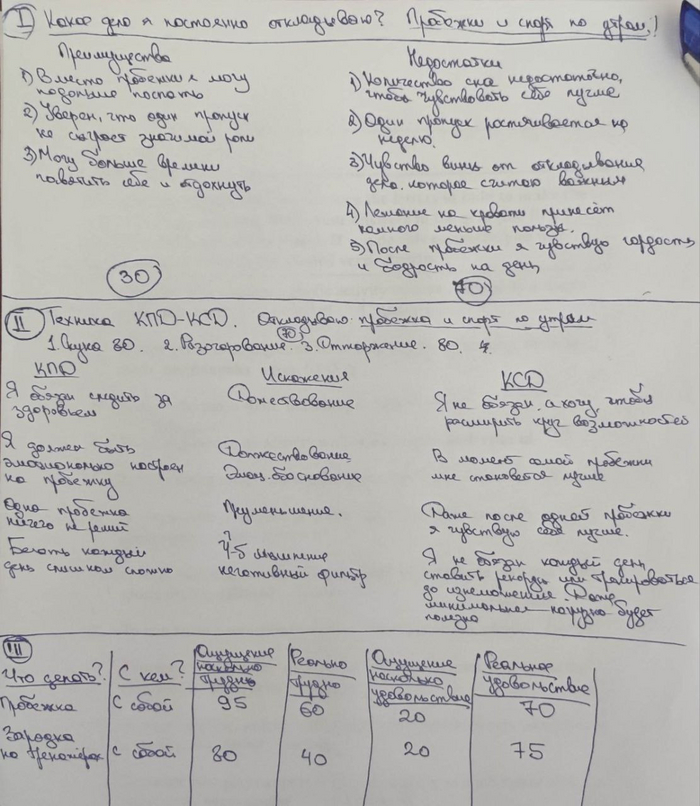 I Какое дело я постоянно откладываю? Пробежки и спорт по утрам!
Преимущества
1) Вместо пробежки я могу
подольше поспать
2) Уверен, что один пропуск
не сыграет значимой роли
3) Могу больше времени
посвятить себе и отдохнуть
30
Недостатки
1) Количество сна недостаточно,
чтобы чувствовать себя лучше
2) Один пропуск растягивается на
неделю.
3) Чувство вины от откладывания
дела, которое считаю важным
4) Лежание на кровати принесёт
намного меньше пользы.
5) После пробежки я чувствую гордость
и бодрость на день
70
II Техника КПД-КСД. Откладываю пробежка и спорт по утрам
1. Скука 80. 2. Разочарование. 70 3. Отторжение. 80. 4.
КПД Искажения КСД
Я обязан следить за
здоровьем
Долженствование
Я не обязан, а хочу, чтобы
расширить круг возможностей
Я должен быть
эмоционально настроен
на пробежку
Долженствование
Эмоц. обоснование
В момент самой пробежки
мне становится лучше
Одна пробежка
ничего не решит
Преуменьшение.
Даже после одной пробежки
я чувствую себя лучше.
Бегать каждый
день слишком сложно
Ч-Б мышление
негативный фильтр
Я не обязан каждый день
ставить рекорды или тренироваться
до изнеможения. Даже
минимальная нагрузка будет
полезна
III
Что делать? С кем? Ощущение насколько трудно Реально трудно Ощущение насколько удовольствие Реальное удовольствие
Пробежка С собой 95 60 20 70
Зарядка
на тренажёрах с собой 80 40 20 75